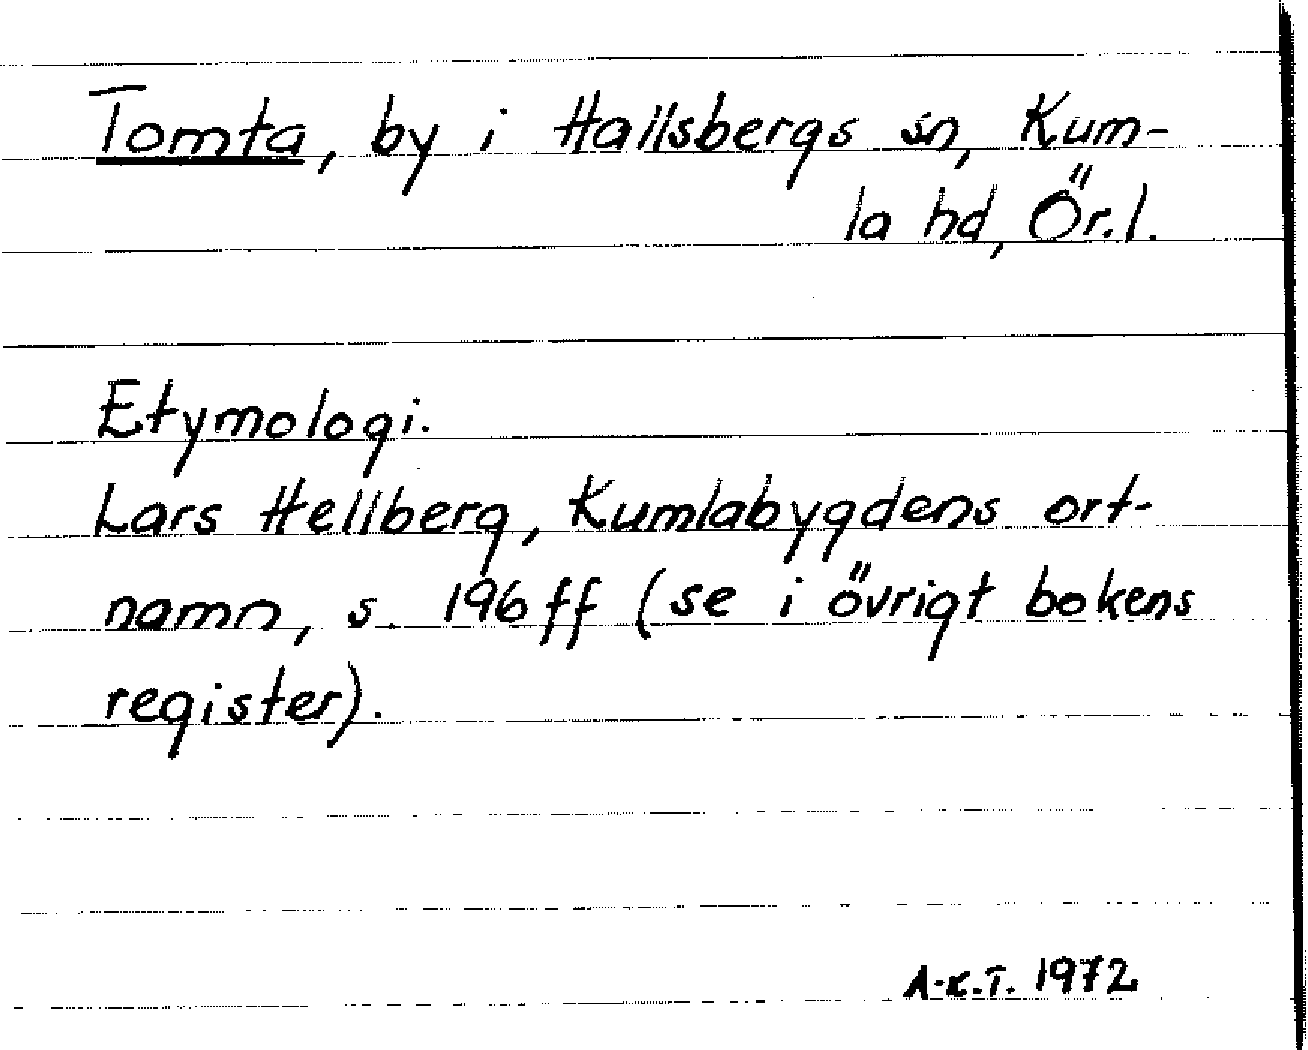 Tomta, by i Hallsbergs sn, Kum-
la hd, Ör.l.
Etymologi.
Lars Hellberg, Kumlabygdens ort-
namn, s. 196 ff (se i övrigt bokens
register).
A-K.T. 1972